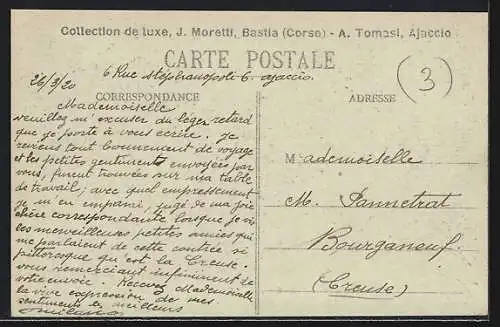 Collection de luxe, J. Moretti, Bastia (Corse) - A. Tomasi, Ajaccio
CARTE POSTALE
6 Rue Stéphanopoli 6. ajaccio.
3
26/3/20
CORRESPONDANCE
ADRESSE
Mademoiselle
veuillez m'excuser du léger retard
que je porte à vous écrire. Je
reviens tout bonnement de voyage
et les petites gentiment envoyées par
vous, furent trouvées sur ma table
de travail; avec quel empressement
je m'en empani, jugé de ma joie
chère correspondante lorsque je vis
les merveilleuses petites amies qui
me parlaient de cette contrée si
pittoresque qu'est la Creuse.
vous remerciant infiniment de
votre envoie. Recevez Mademoiselle
la vive expression de mes
sentiments les meilleurs
Mademoiselle
M. Pannetrat
Bourganeuf
(Creuse)